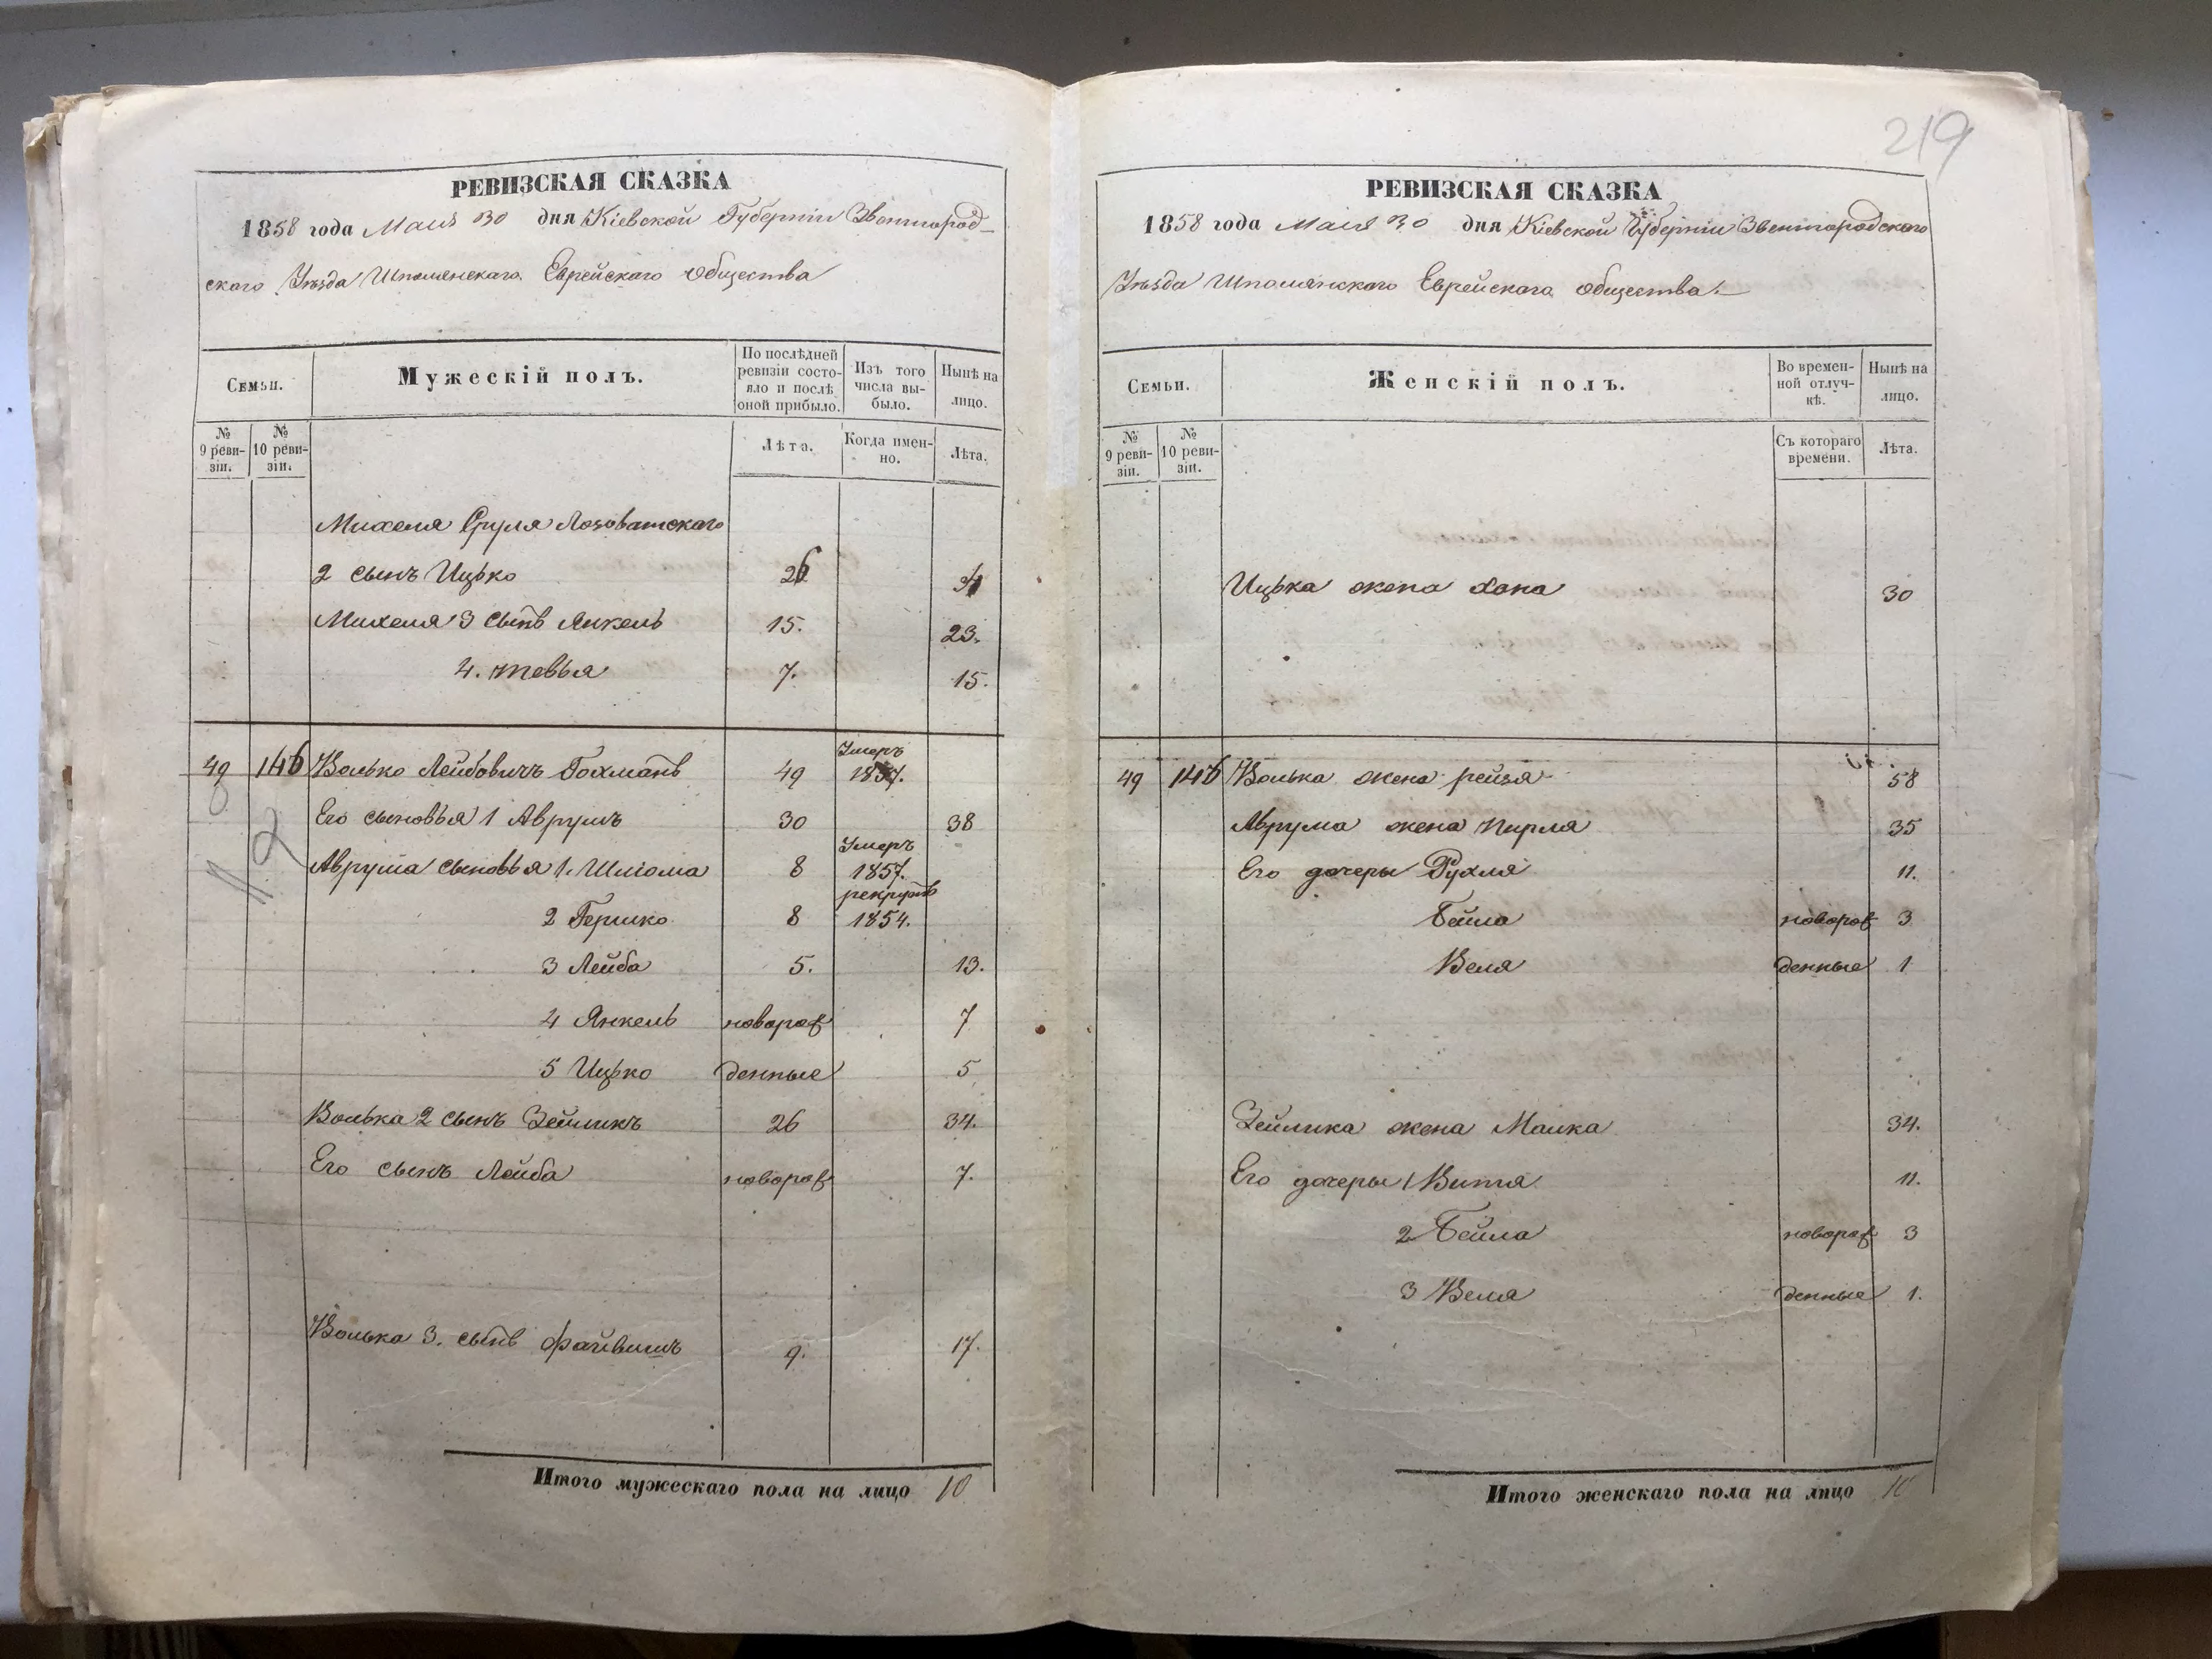 219
РЕВИЗСКАЯ СКАЗКА
1858 года Маия 30 дня Кіевской Губерніи Звенигород-
ского Уѣзда Шполянскаго Еврейскаго общества
Семьи.
Мужескій полъ.
По послѣдней ревизіи состояло и послѣ оной прибыло.
Изъ того числа выбыло.
Нынѣ на лицо.
№ 9 ревизіи.
№ 10 ревизіи.
Лѣта.
Когда именно.
Лѣта.
Михеля Сруля Лозоватскаго
2 сынъ Ицько 26
Михеля 3 сынъ Янкель 15. 23.
4. Тевья 7. 15.
49 146 Волько Лейбовичъ Гохманъ 49 Умеръ 1857.
Его сыновья 1 Аврумъ 30 38
Аврума сыновья 1. Шліома 8 Умеръ 1857.
2 Гершко 8 рекрутъ 1854.
3 Лейба 5. 13.
4 Янкель новорож 7
5 Ицько денные 5
Волька 2 сынъ Зейликъ 26 34.
Его сынъ Лейба новорож 7.
Волька 3. сынъ Файвишъ 9. 17.
Итого мужескаго пола на лицо 10
РЕВИЗСКАЯ СКАЗКА
1858 года Маия 30 дня Кіевской Губерніи Звенигородскаго
Уѣзда Шполянскаго Еврейскаго общества.
Семьи.
Женскій полъ.
Во временной отлучкѣ.
Нынѣ на лицо.
№ 9 ревизіи.
№ 10 ревизіи.
Съ котораго времени.
Лѣта.
Ицька жена Хана 30
49 146 Волька жена Рейзя 58
Аврума жена Пирля 35
Его дочеры Рухля 11.
Бейла новорож 3
Веля денные 1
Зейлика жена Малка 34.
Его дочеры 1 Витя 11.
2 Бейла новорож 3
3 Веля денные 1.
Итого женскаго пола на лицо 10